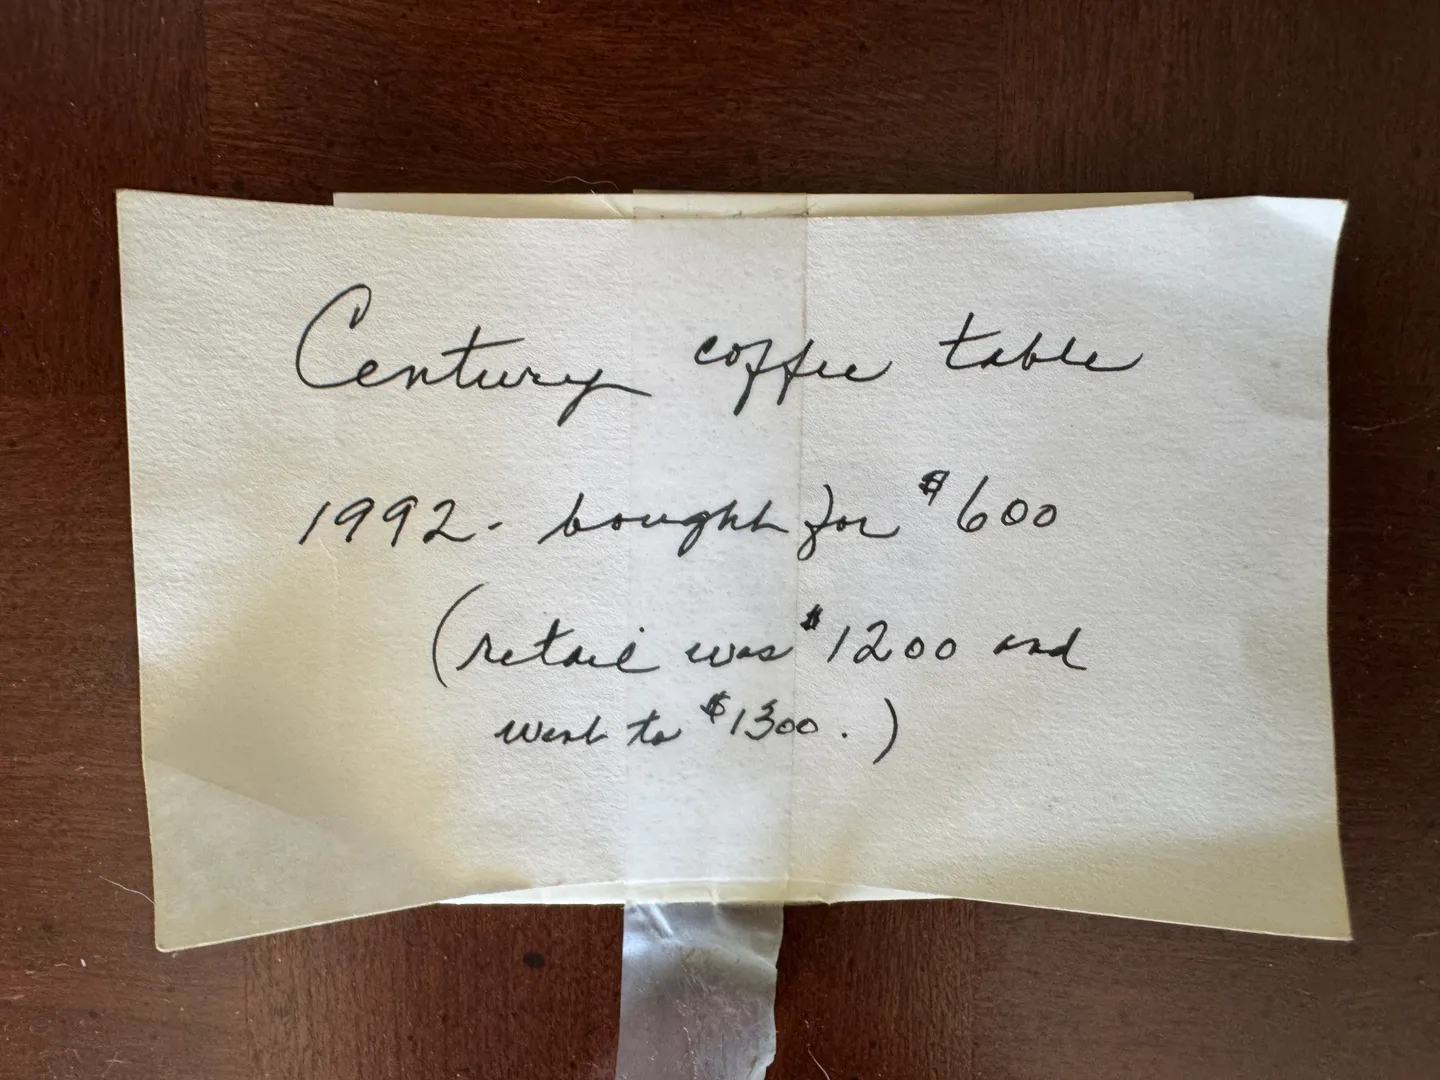 Century coffee table
1992- bought for $600
(retail was $1200 and
went to $1300.)